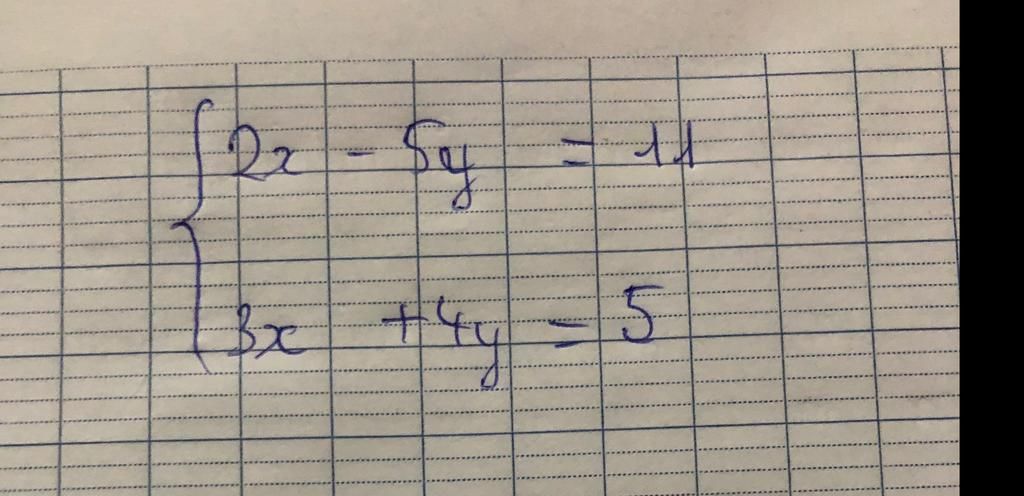 2x - 5y = 11
3x + 4y = 5